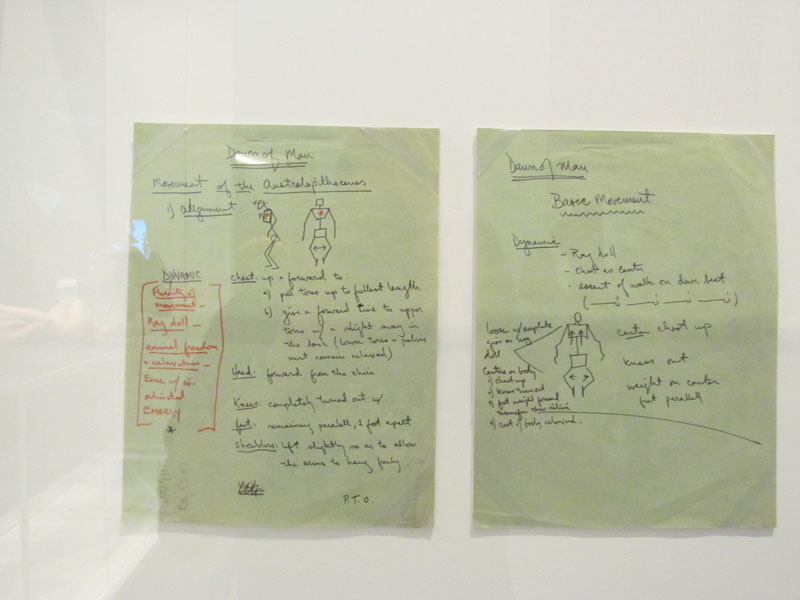 Dawn of Man
Movement of the Australopithecenes
1) alignment
DYNAMIC
Parity of
movement -
Rag doll -
animal freedom
& relaxation -
Ease w/
ENERGY
*
chest: up & forward to
a) pull torso up to fullest length
b) give a forward thrust to upper
torso w/ a slight sway in
the back (lower torso & pelvis
must remain relaxed)
Head: forward from the chin
Knees: completely turned out w/
feet: remaining parallel, 1 foot apart
shoulders: lift slightly so as to allow
the arms to hang freely
P.T.O.
Dawn of Man
Basic Movement
Dynamic
- Rag doll
- Chest is center
- accent of walk on down beat
loose w/ complete
give as rag
doll
Centers on body
1) chest up
2) knees turn out
3) feet weight forward
4) rest of body relaxed.
center chest up
knees out
weight on center
feet parallel